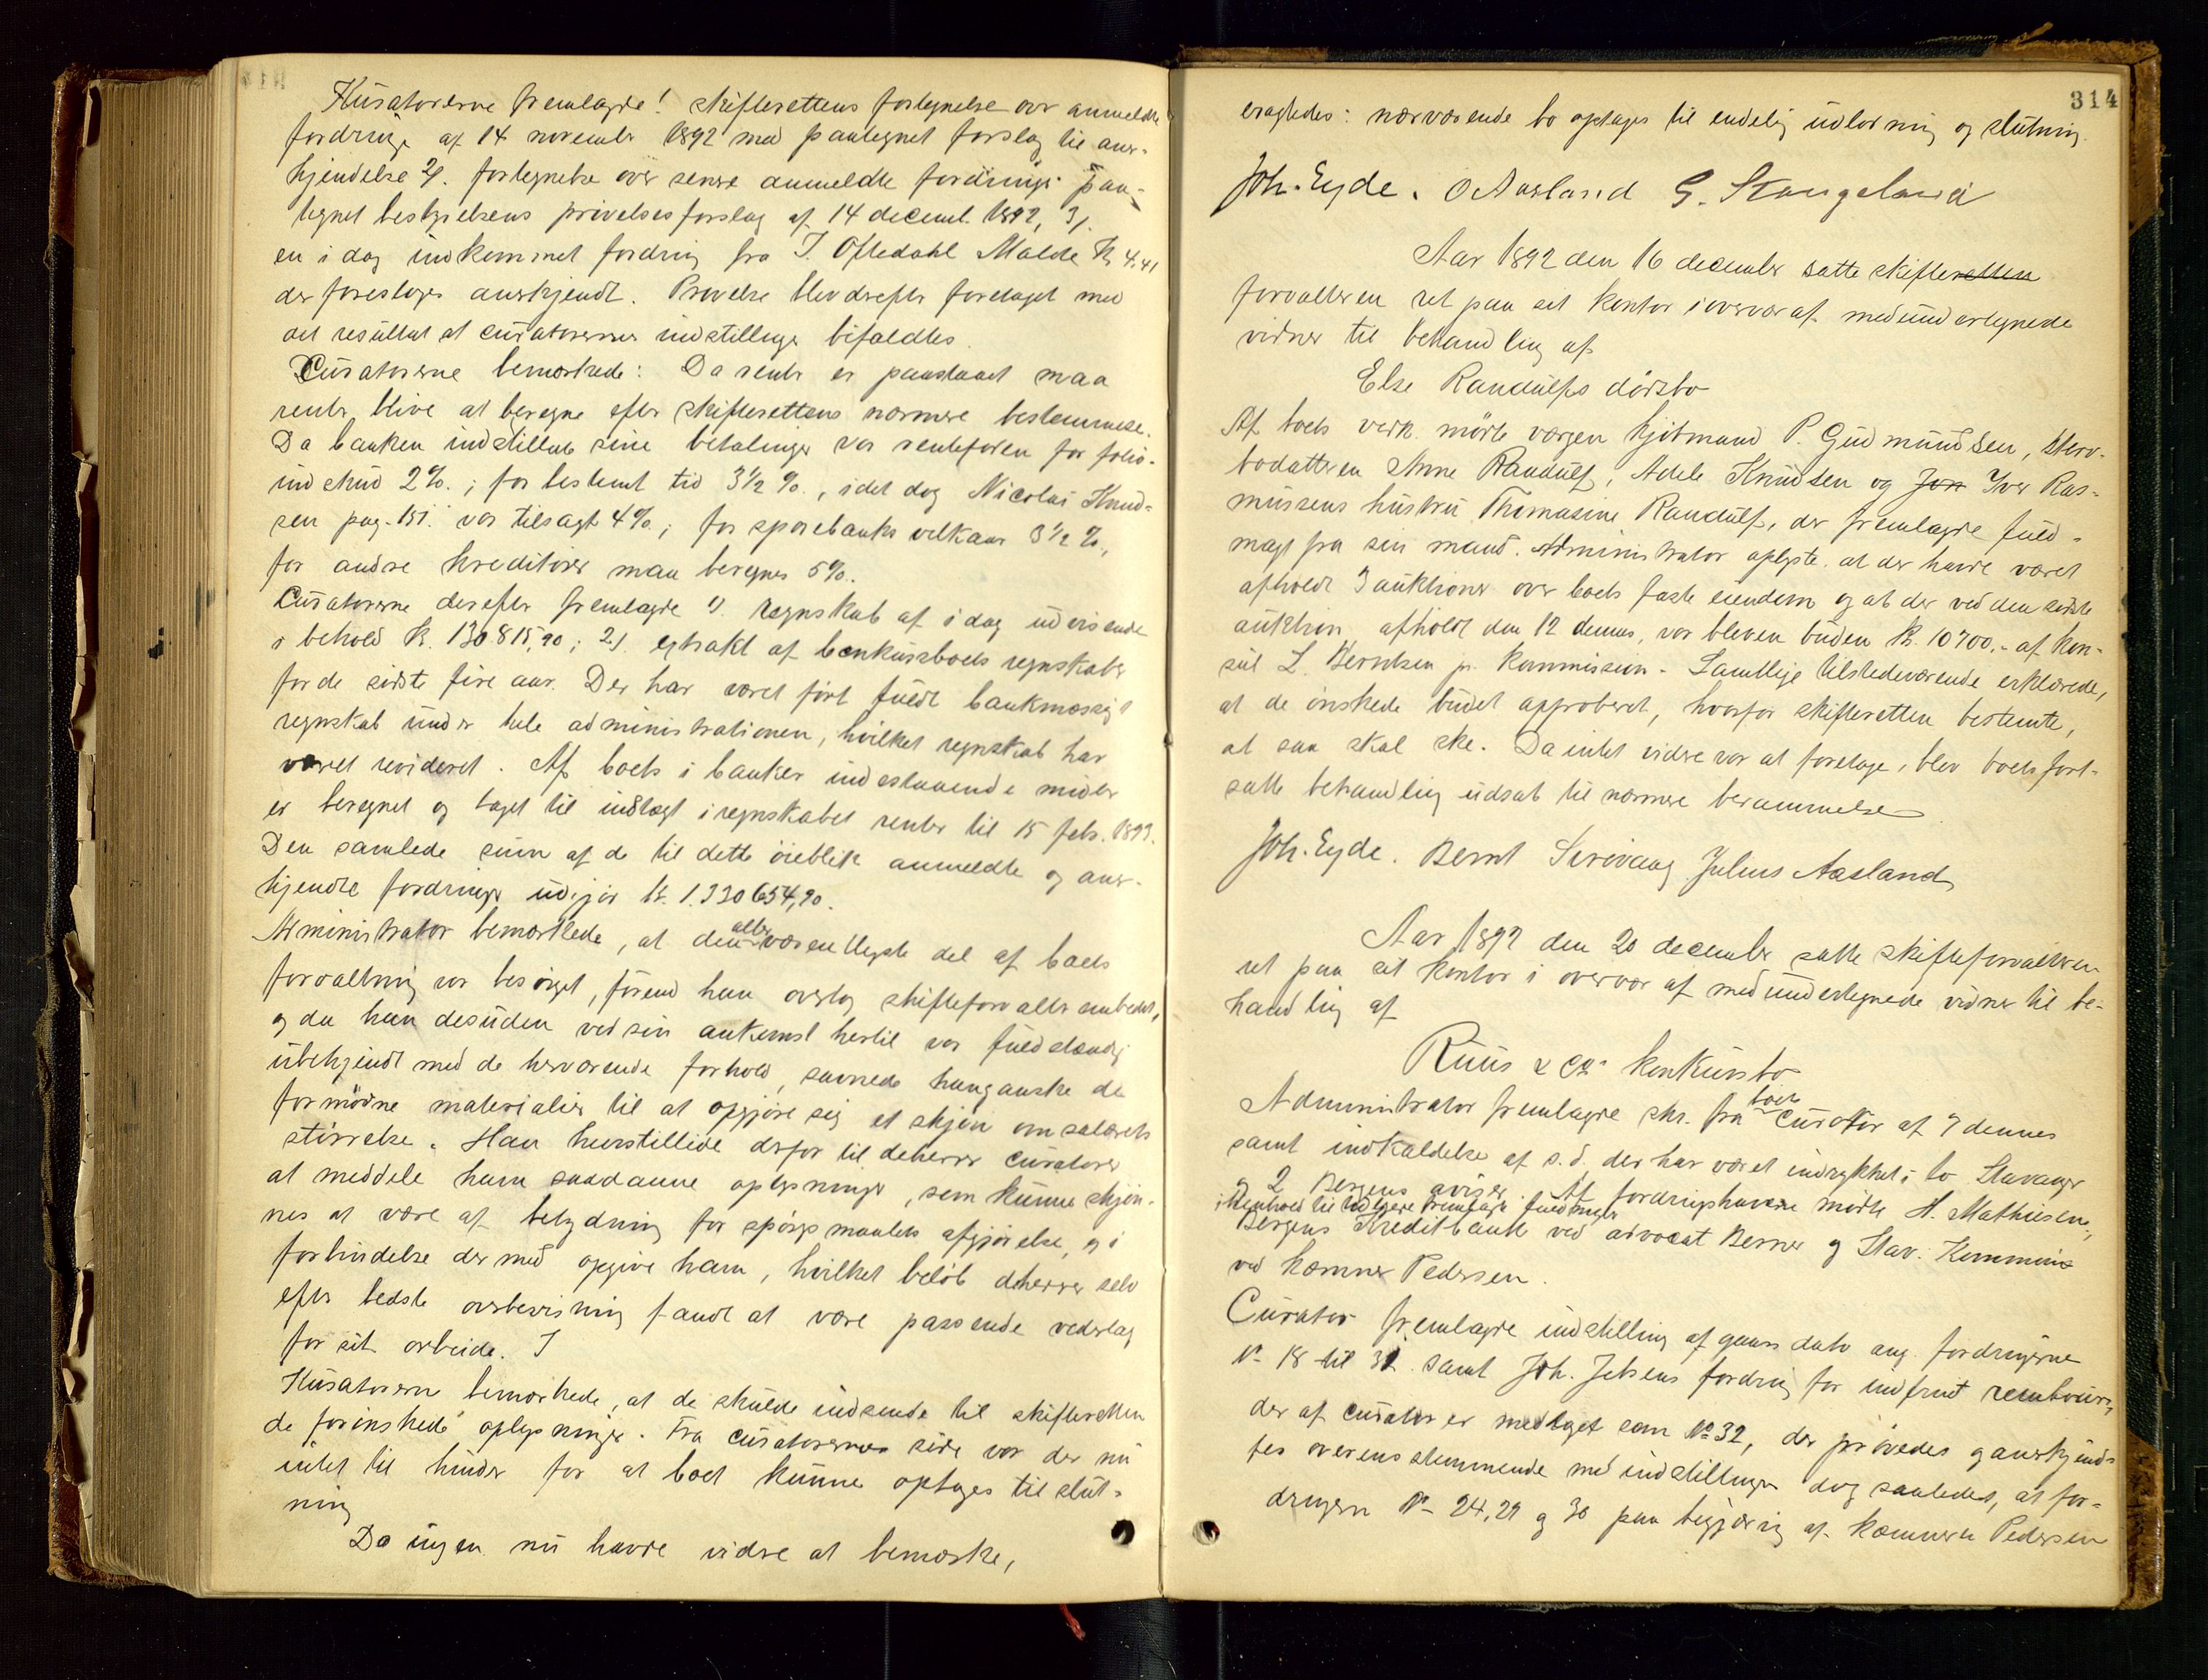 Kuratorerne fremlagde 1. skifterettens fortegnelse over anmeldte
fordringer af 14 november 1892 med paategnet forslag til aner-
kjendelse 2). fortegnelse over senere anmeldte fordringer paa-
tegnet bestyrelsens prøvelsesforslag af 14 decemb. 1892, 3).
en i dag indkommet fordring fra T. Oftedahl Malde Kr 4.41
der foresloges anerkjendt. Prøvelse blev derefter foretaget med
det resultat at curatorernes indstillinger bifaldtes.
Curatorerne bemærkede: Da renter er paastaaet maa
renter blive at beregne efter skifterettens nærmere bestemmelse.
Da banken indstillede sine betalinger var rentefoden for folio-
indskud 2%.; for bestemt tid 3½%., idet dog Nicolai Knud-
sen pag. 151. var tilsagt 4%; for sparebanks vilkaar 3½%,
for andre kreditorer maa beregnes 5%.
Curatorerne derefter fremlagde 1). regnskab af i dag udvisende
i behold Kr. 130.815,90; 2). extrakt af bankens boets regnskaber
for de sidste fire aar. Der har været ført fuldt bankmæssigt
regnskab under hele administrationen, hvilket regnskab har
været revideret. Af boets i banker indestaaende midler
er beregnet og taget til indtægt i regnskabet renter til 15 feb. 1893.
Den samlede sum af de til dette øieblik anmeldte og aner-
kjendte fordringer udgjør kr. 1.330654,90.
Administrator bemærkede, at den aller væsentligste del af boets
forvaltning var besørget, førend han overtog skifteforvalterembedet,
og da han desuden ved sin ankomst hertil var fuldstændig
ubekjendt med de herværende forhold, savnede han ganske de
fornødne materialier til at opgjøre sig et skjøn om salærets
størrelse. Han henstillede derfor til deherrer curatorer
at meddele ham saadanne oplysninger, som kunne skjøn-
nes at være af betydning for spørgsmaalets afgjørelse, og i
forbindelse dermed opgive ham, hvilket beløb deherrer selv
efter bedste overbevisning fandt at være passende vederlag
for sit arbeide.
Kuratorerne bemærkede, at de skulde indsende til skifteretten
de forønskede oplysninger. Fra curatorernes side var der nu
intet til hinder for at boet kunne optages til slut-
ning
Da ingen nu havde videre at bemærke,
314
eragtedes: nærværende bo optages til endelig udlodning og slutning.
Joh. Eyde. O Aasland G. Stangeland
Aar 1892 den 16 december satte skifteretten
forvalteren ret paa sit kontor i overvær af medundertegnede
vidner til behandling af
Else Randulfs dødsbo
Af boets vedk. mødte værgen kjøbmand P. Gudmundsen, sterv-
bodatteren Anne Randulf, Adele Knudsen og Jon Iver Ras-
mussens hustru Thomasine Randulf, der fremlagde fuld-
magt fra sin mand. Administrator oplyste at der havde været
afholdt 3 auktioner over boets faste eiendom og at der ved den sidste
auktion, afholdt den 12 dennes, var bleven buden Kr. 10700,- af kon-
sul L. Berntsen jr. Kommission - Samtlige tilstedeværende erklærede,
at de ønskede budet approberet, hvorfor skifteretten bestemte,
at saa skal ske. Da intet videre var at foretage, blev boets fort-
satte behandling udsat til nærmere berammelse
Joh. Eyde. Bernt Sirevaag Julius Aasland
Aar 1892 den 20 december satte skifteforvalteren
ret paa sit kontor i overvær af medundertegnede vidner til be-
handling af
Ruus & Co konkursbo
Administrator fremlagde skr. fra boets curator af 7 dennes
samt indkaldelse af s.d. der har været indrykket i to Stavanger
og 2 Bergens aviser. Af fordringshaverne mødte H. Mathiesen,
i henhold til tidligere fremlagt fuldmagt
Bergens Kreditbank ved advocat Berner og Stav. Kommune
ved kæmner Pedersen.
Curator fremlagde indstilling af gaars dato ang. fordringerne
No 18 til 31 samt Joh. Jebsens fordring for indfriet rembours,
der af curator er medtaget som No 32, der prøvedes og anerkjend-
tes overensstemmende med indstillingen dog saaledes, at for-
dringerne No 24, 29 og 30 paa begjæring af kæmneren Pedersen